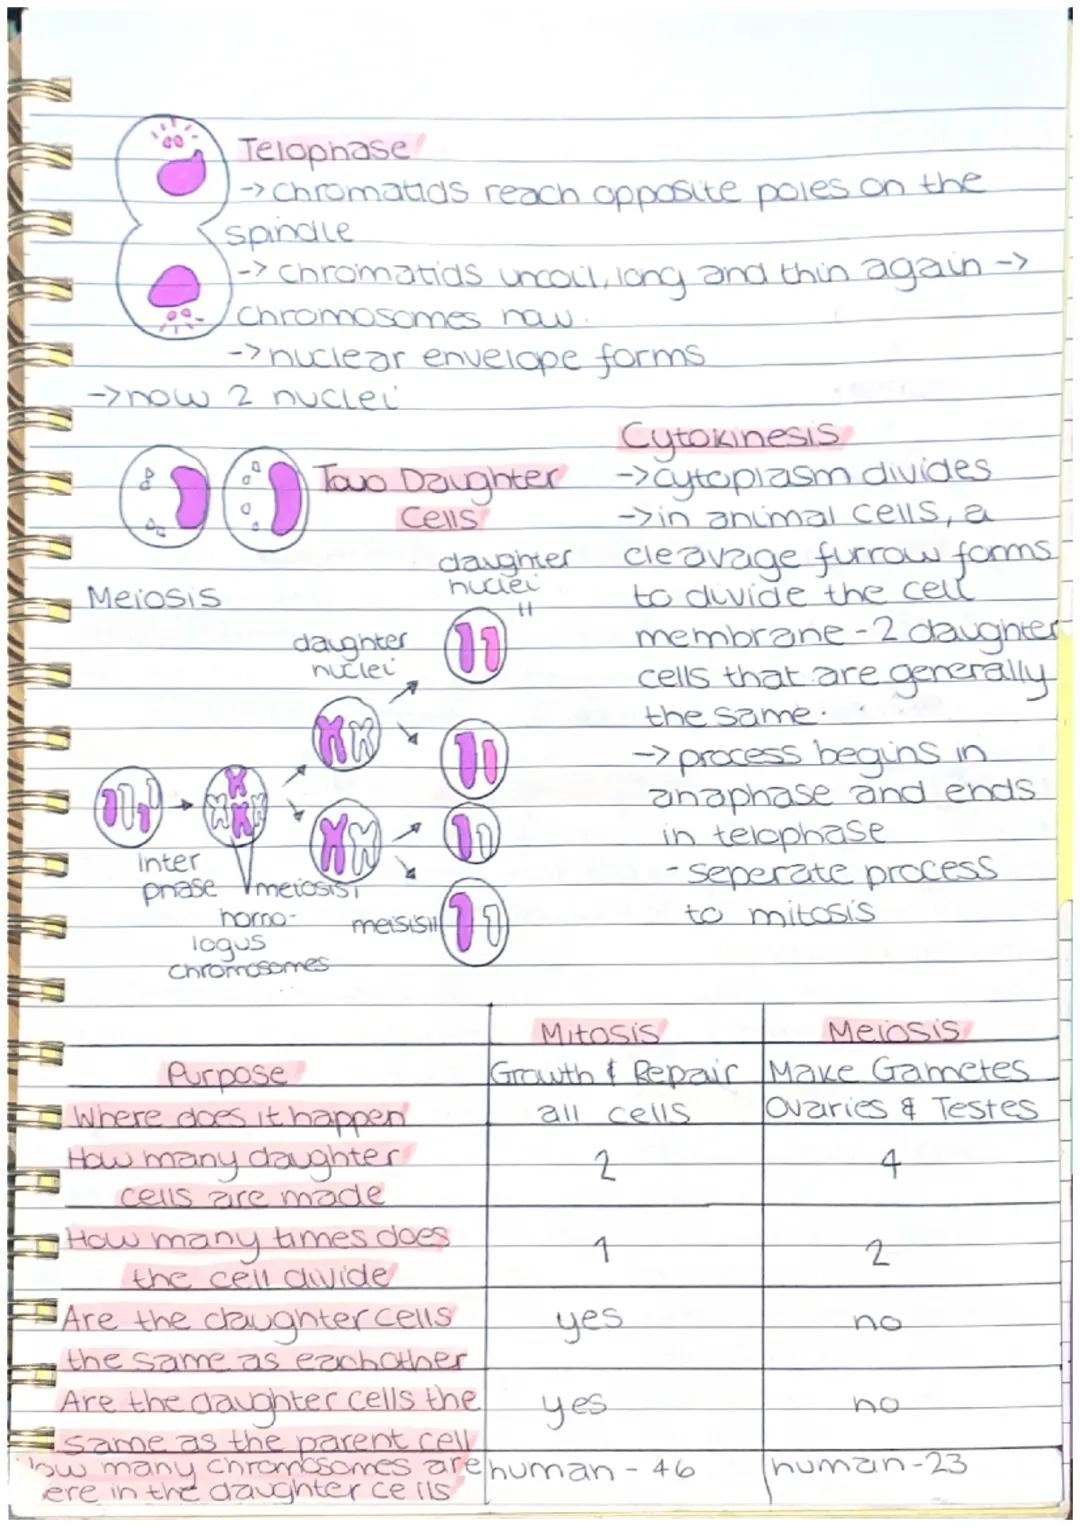 Telophase
-> chromatids reach opposite poles on the
spindle
-> chromatids uncoil, long and thin again ->
chromosomes now.
-> nuclear envelope forms
-> now 2 nuclei
Two Daughter
Cells
Cytokinesis
-> cytoplasm divides
-> in animal cells, a
cleavage furrow forms
to divide the cell
membrane - 2 daughter
cells that are generally
the same.
-> process begins in
anaphase and ends
in telophase
- seperate process
to mitosis
Meiosis
daughter
nuclei
II
daughter
nuclei
inter
phase
meiosis I
homo-
logus
chromosomes
meisis II
Mitosis Meiosis
Purpose Growth & Repair Make Gametes
Where does it happen all cells Ovaries & Testes
How many daughter
cells are made 2 4
How many times does
the cell divide 1 2
Are the daughter cells
the same as eachother yes no
Are the daughter cells the
same as the parent cell yes no
How many chromosomes are human - 46 human - 23
ere in the daughter cells